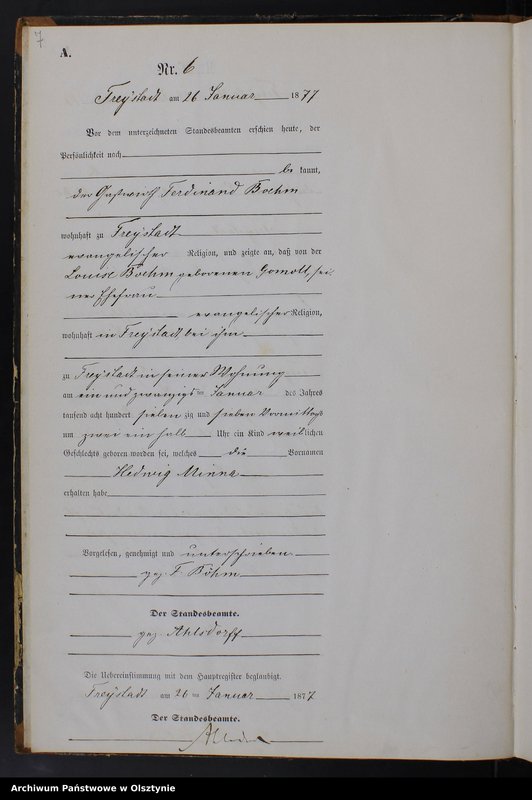 7
A.
Nr. 6
Freystadt am 26 Januar 1877
Vor dem unterzeichneten Standesbeamten erschien heute, der
Persönlichkeit nach
be kannt,
der Gastwirth Ferdinand Boehm
wohnhaft zu Freystadt
evangelischer Religion, und zeigte an, daß von der
Louise Boehm geborenen Gomoll, sei-
ner Ehefrau
evangelischer Religion,
wohnhaft in Freystadt bei ihm
zu Freystadt in seiner Wohnung
am ein und zwanzigsten Januar des Jahres
tausend acht hundert sieben zig und sieben Vormittags
um zwei ein halb Uhr ein Kind weiblichen
Geschlechts geboren worden sei, welches die Vornamen
Hedwig Minna
erhalten habe
Vorgelesen, genehmigt und unterschrieben
gez. F. Böhm
Der Standesbeamte.
gez. Ahlsdorff
Die Uebereinstimmung mit dem Hauptregister beglaubigt.
Freystadt am 26 ten Januar 1877
Der Standesbeamte.
Archiwum Państwowe w Olsztynie